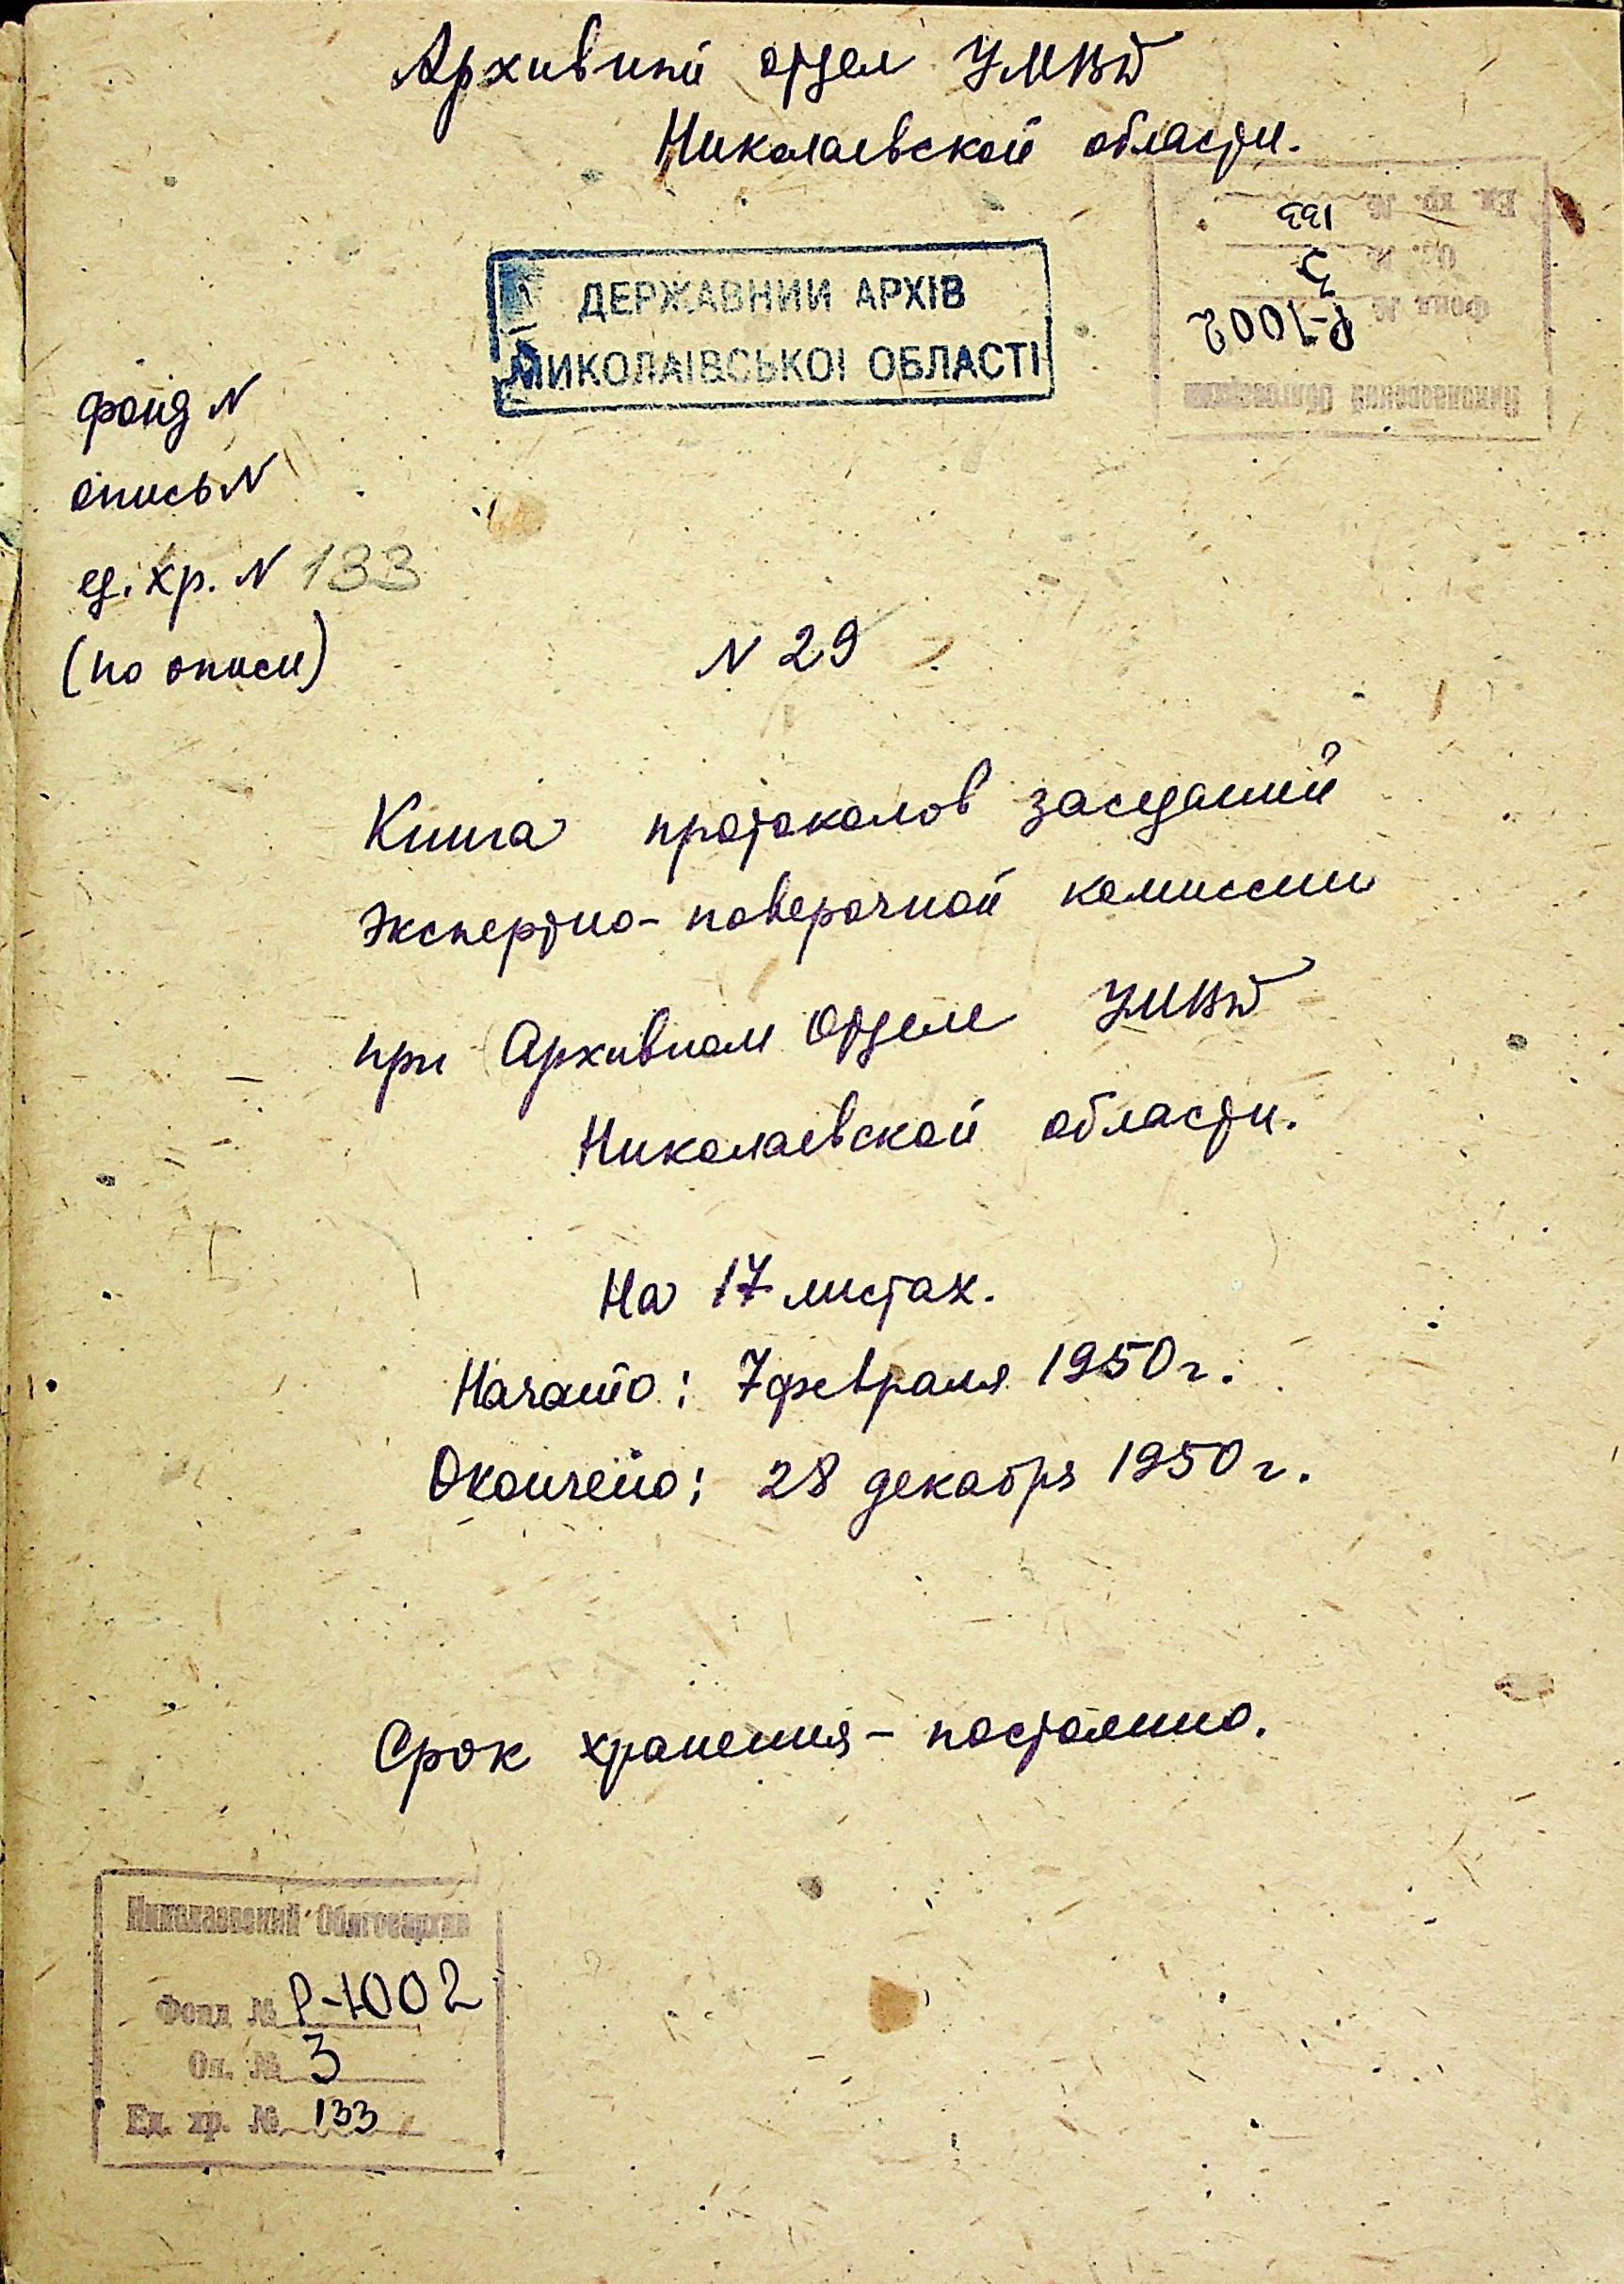 Архивный отдел УМВД
Николаевской области.
Ед. хр. № 133
Оп. № 3
Фонд № Р-1002
Николаевский Облгосархив
ДЕРЖАВНИЙ АРХІВ
МИКОЛАЇВСЬКОЇ ОБЛАСТІ
фонд N
опись N
ед. хр. N 133
(по описи)
N 29
Книга протоколов заседаний
Экспертно-поверочной комиссии
при Архивном Отделе УМВД
Николаевской области.
На 17 листах.
Начато: 7 февраля 1950 г.
Окончено: 28 декабря 1950 г.
Срок хранения - постоянно.
Николаевский Облгосархив
Фонд № Р-1002
Оп. № 3
Ед. хр. № 133